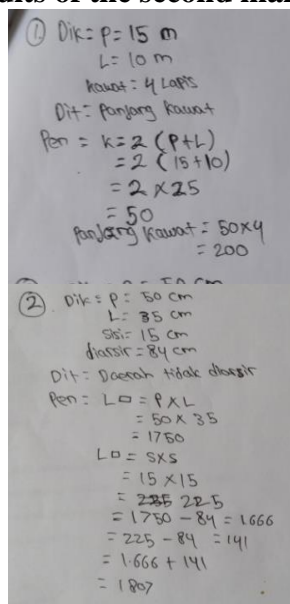 ① Dik = P = 15 m
L = 10 m
kawat = 4 Lapis
Dit = Panjang kawat
Pen = K = 2 (P+L)
= 2 (15+10)
= 2 × 25
= 50
Panjang kawat = 50×4
= 200
② Dik = P = 50 cm
L = 35 cm
Sisi = 15 cm
diarsir = 84 cm
Dit = Daerah tidak diarsir
Pen = L▭ = P × L
= 50 × 35
= 1750
L□ = S×S
= 15 × 15
= 225
= 1750 - 84 = 1.666
= 225 - 84 = 141
= 1.666 + 141
= 1807